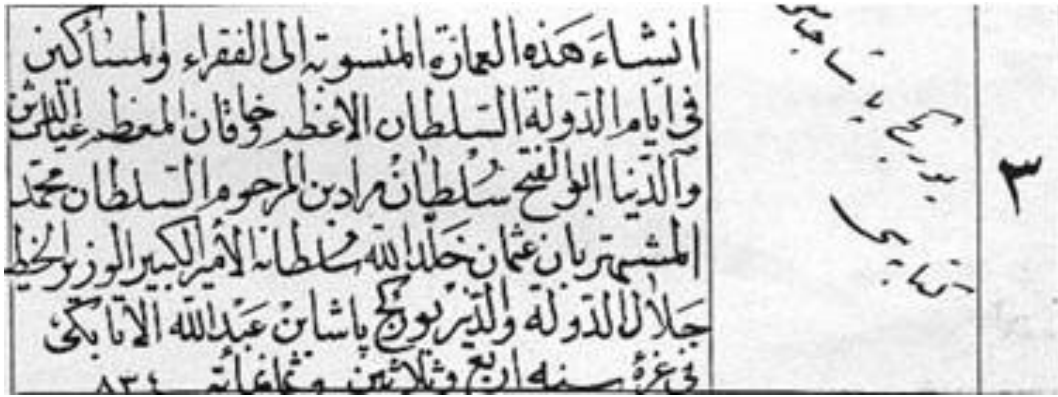 انشاء هذه العمارة المنسوبة الى الفقراء والمساكين
فى ايام الدولة السلطان الاعظم وخاقان المعظم غياث
والدنيا ابو الفتح سلطان مراد بن المرحوم السلطان محمد
المشتهر بابن عثمان خلد الله سلطانه الأمير الكبير الوزير الخطير
جلال الدولة والدين يوركج پاشا بن عبد الله الاتابكى
فى غرة سنه اربع وثلاثين وثمانمأته ٨٣٤
يوركج پاشا
٣